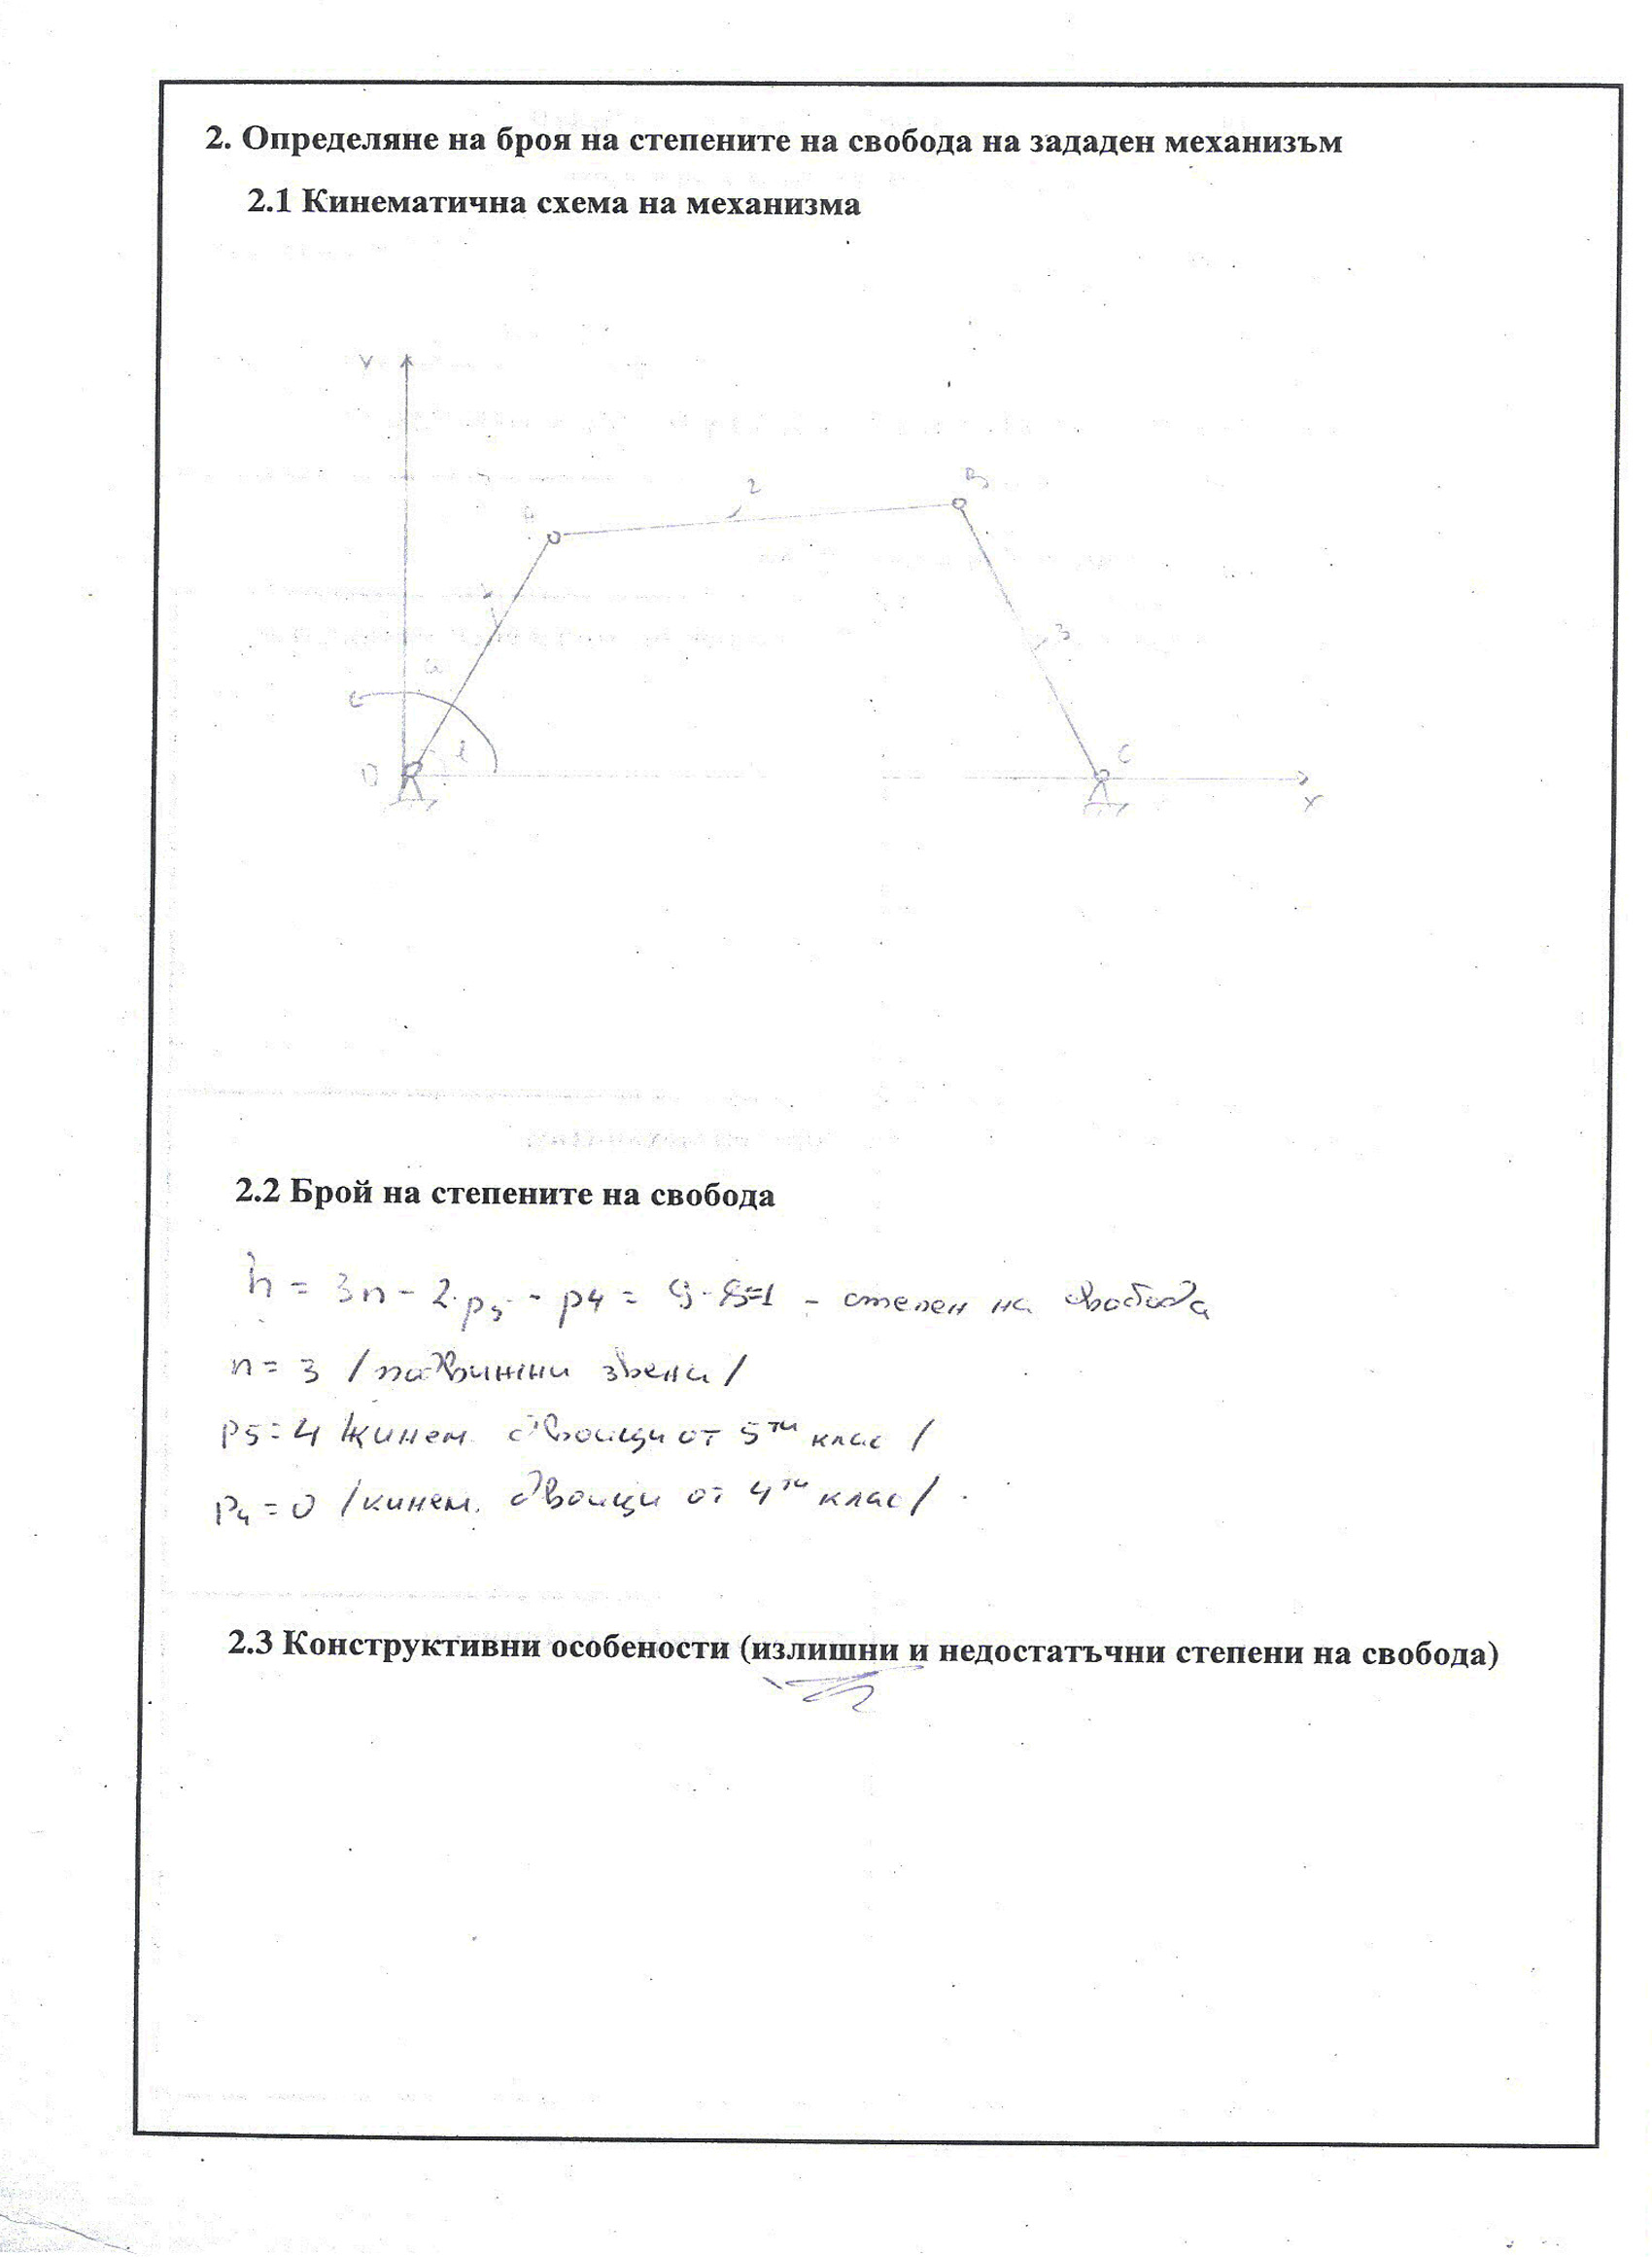 2. Определяне на броя на степените на свобода на зададен механизъм
2.1 Кинематична схема на механизма
y
2
B
A
1
3
O
C
x
2.2 Брой на степените на свобода
h = 3n - 2.p5 - p4 = 9-8=1 - степен на свобода
n = 3 /подвижни звена/
p5 = 4 /кинем. двоици от 5ти клас/
p4 = 0 /кинем. двоици от 4ти клас/.
2.3 Конструктивни особености (излишни и недостатъчни степени на свобода)